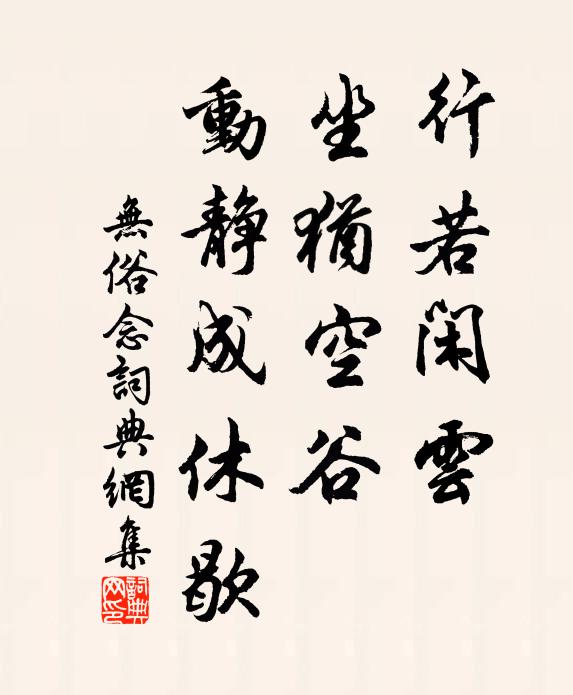 行若閑雲
坐猶空谷
動靜成休歇
無俗念詞典網集
詞典網印